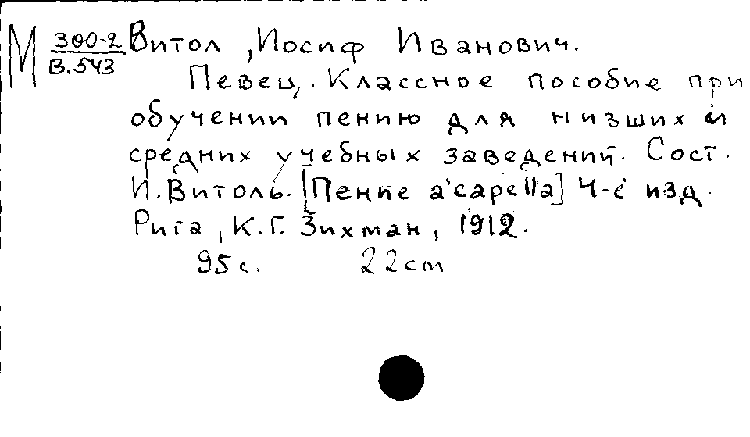 М 300-2 Витол, Иосиф Иванович.
В.543
Певец. Классное пособие при
обучении пению для низших и
средних учебных заведений. Сост.
И. Витоль. [Пение a'capella] 4-е изд.
Рига, К.Г. Зихман, 1912.
95 с. 22 cm